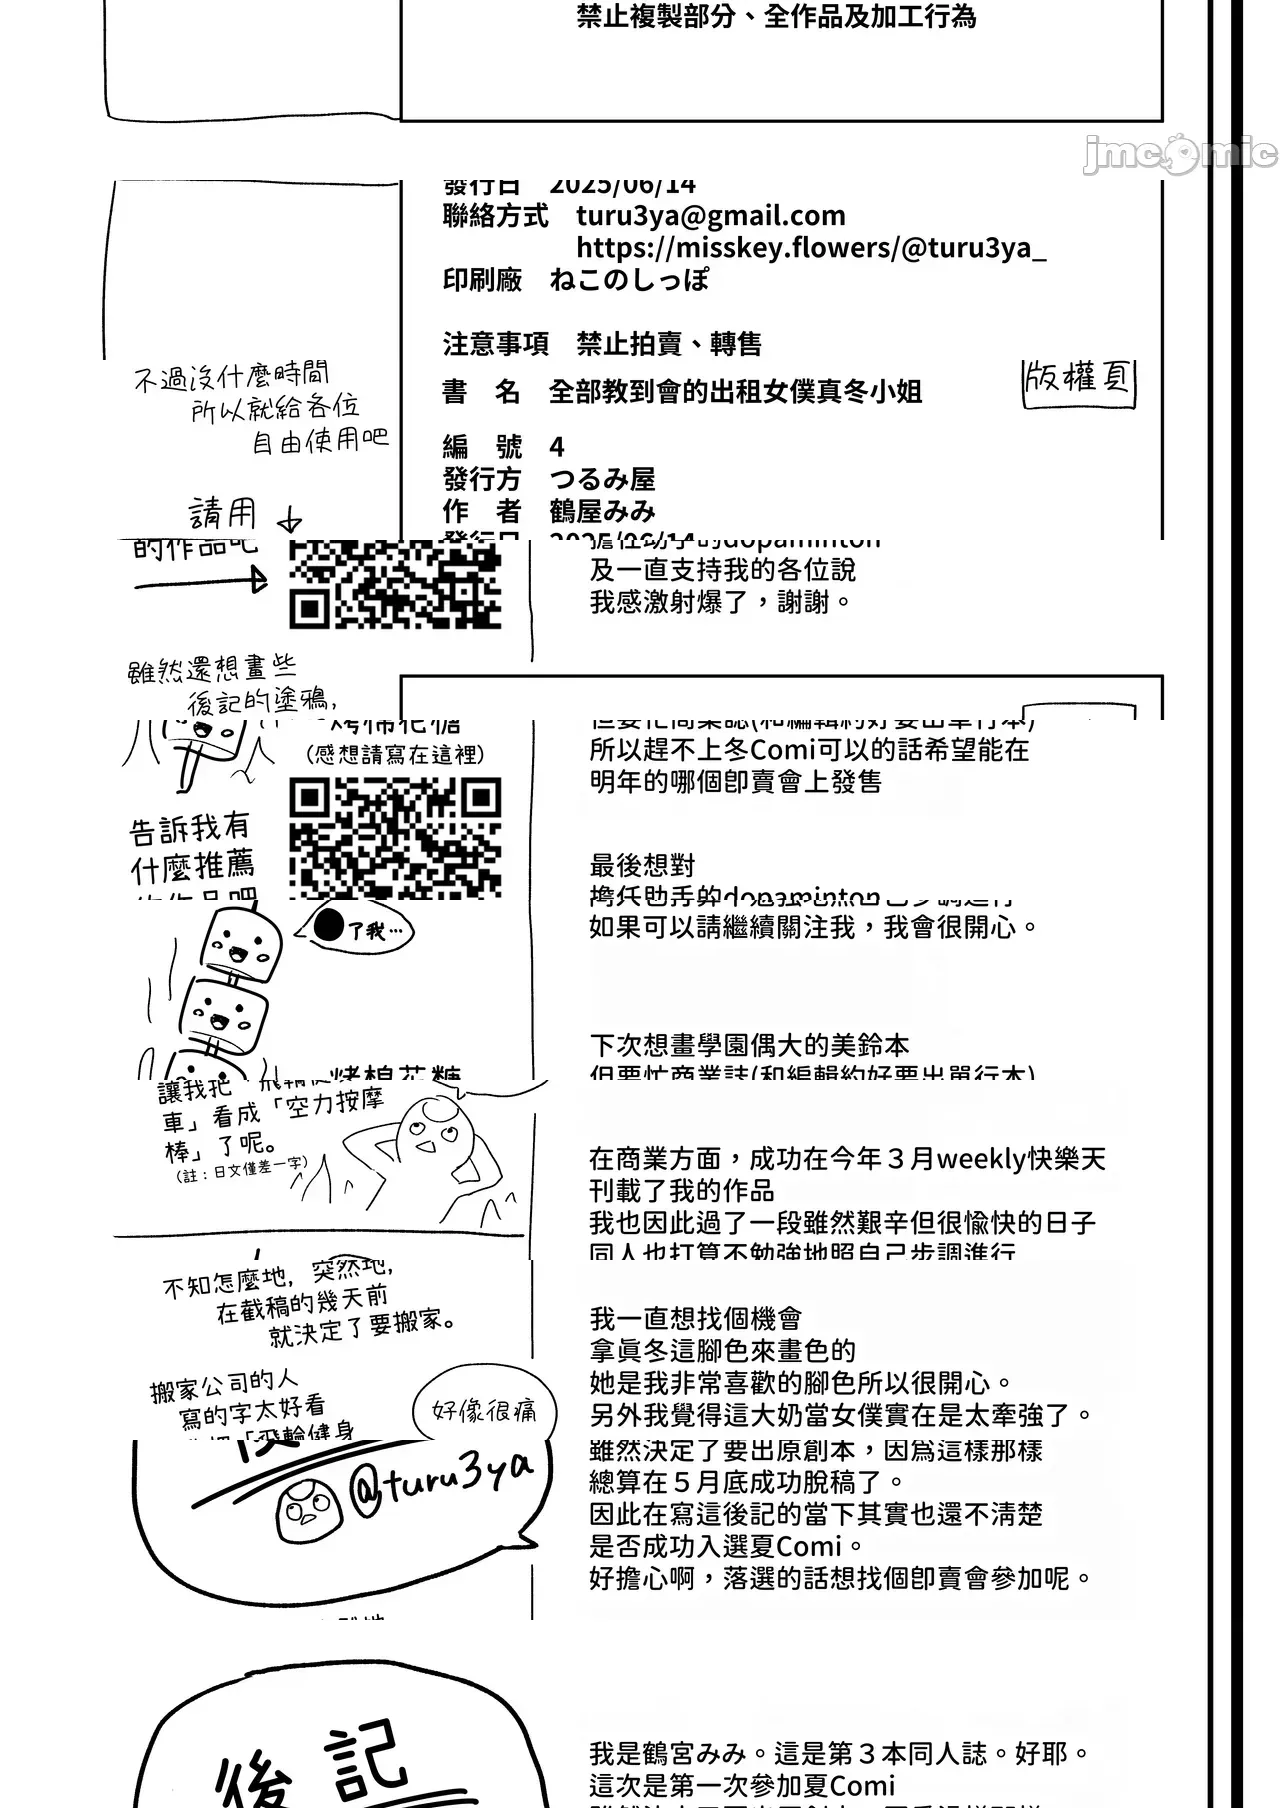 禁止複製部分、全作品及加工行為
jmcomic
發行日 2025/06/14
聯絡方式 turu3ya@gmail.com
https://misskey.flowers/@turu3ya_
印刷廠 ねこのしっぽ
注意事項 禁止拍賣、轉售
不過沒什麼時間
所以就給各位
自由使用吧
請用
版權頁
書 名 全部教到會的出租女僕真冬小姐
編 號 4
發行方 つるみ屋
作 者 鶴屋みみ
發行日 2025/06/14
的作品吧
擔任助手的dopaminton
及一直支持我的各位說
我感激射爆了，謝謝。
雖然還想畫些
後記的塗鴉,
烤棉花糖
(感想請寫在這裡)
告訴我有
什麼推薦
的作品吧
但要忙商業誌(和編輯約好要出單行本)
所以趕不上冬Comi可以的話希望能在
明年的哪個卽賣會上發售
最後想對
擔任助手的dopaminton
如果可以請繼續關注我，我會很開心。
了我…
下次想畫學園偶大的美鈴本
但要忙商業誌(和編輯約好要出單行本)
烤棉花糖
車」看成「空力按摩
棒」了呢。
(註：日文僅差一字)
在商業方面，成功在今年３月weekly快樂天
刊載了我的作品
我也因此過了一段雖然艱辛但很愉快的日子
同人也打算不勉強地照自己步調進行
不知怎麼地，突然地,
在截稿的幾天前
就決定了要搬家。
搬家公司的人
寫的字太好看
好像很痛
我一直想找個機會
拿眞冬這腳色來畫色的
她是我非常喜歡的腳色所以很開心。
另外我覺得這大奶當女僕實在是太牽強了。
@turu3ya
雖然決定了要出原創本，因爲這樣那樣
總算在５月底成功脫稿了。
因此在寫這後記的當下其實也還不清楚
是否成功入選夏Comi。
好擔心啊，落選的話想找個卽賣會參加呢。
後記
我是鶴宮みみ。這是第３本同人誌。好耶。
這次是第一次參加夏Comi